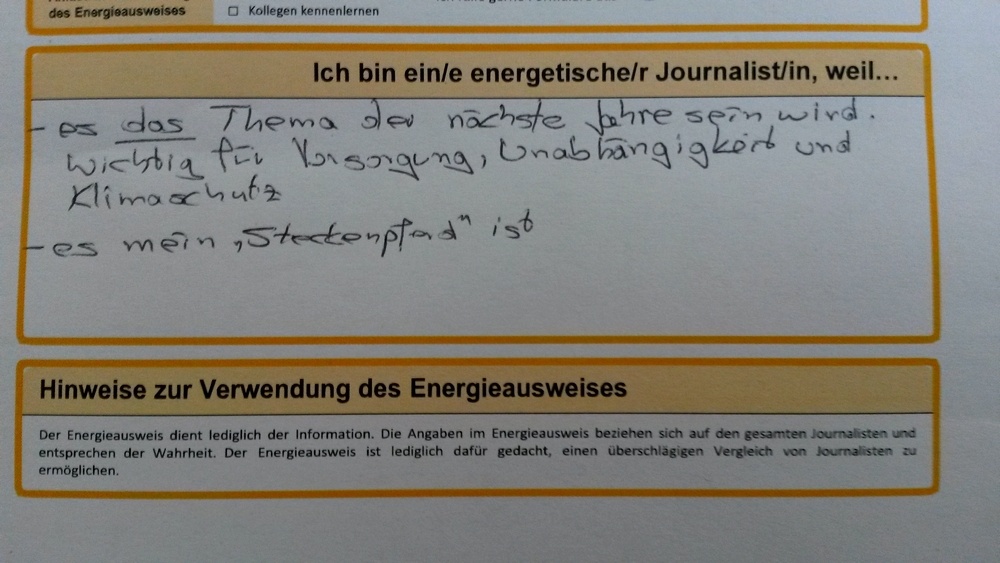 des Energieausweises
☐ Kollegen kennenlernen
Ich bin ein/e energetische/r Journalist/in, weil...
- es das Thema der nächste Jahre sein wird.
wichtig für Versorgung, Unabhängigkeit und
Klimaschutz
- es mein „Steckenpferd" ist
Hinweise zur Verwendung des Energieausweises
Der Energieausweis dient lediglich der Information. Die Angaben im Energieausweis beziehen sich auf den gesamten Journalisten und
entsprechen der Wahrheit. Der Energieausweis ist lediglich dafür gedacht, einen überschlägigen Vergleich von Journalisten zu
ermöglichen.